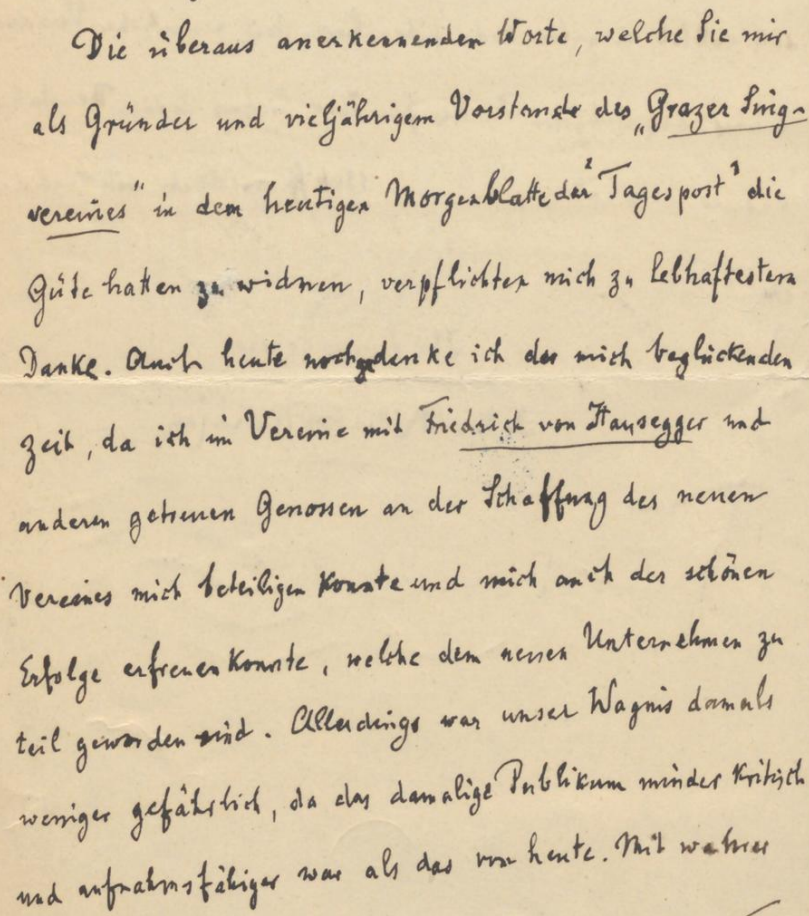 Die überaus anerkennenden Worte, welche Sie mir
als Gründer und vieljährigem Vorstande des „Grazer Sing-
vereines" in dem heutigen Morgenblatte der "Tagespost" die
Güte hatten zu widmen, verpflichten mich zu lebhaftestem
Danke. Auch heute noch gedenke ich der mich beglückenden
Zeit, da ich im Vereine mit Friedrich von Hausegger und
anderen getreuen Genossen an der Schaffung des neuen
Vereines mich beteiligen konnte und mich auch der schönen
Erfolge erfreuen konnte, welche dem neuen Unternehmen zu
teil geworden sind. Allerdings war unser Wagnis damals
weniger gefährlich, da das damalige Publikum minder kritisch
und aufnahmsfähiger war als das von heute. Mit wahrer